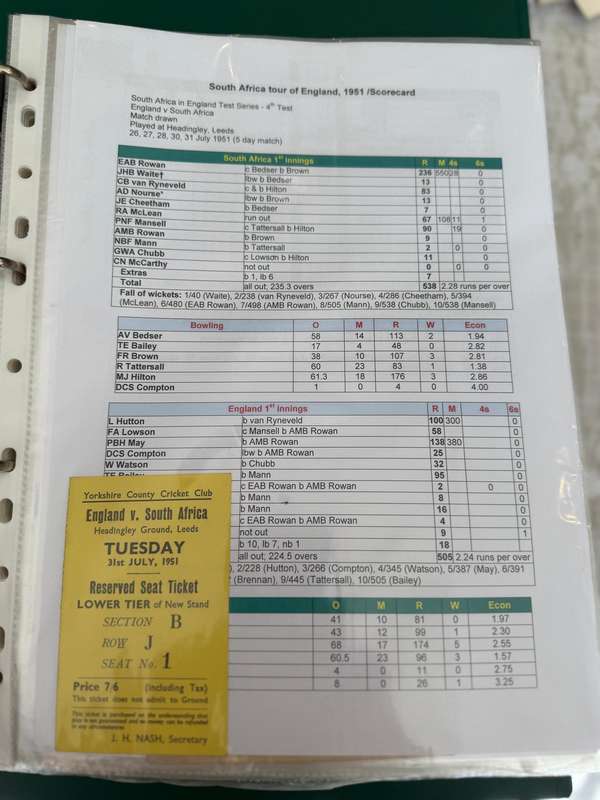 South Africa tour of England, 1951 /Scorecard
South Africa in England Test Series - 4th Test
England v South Africa
Match drawn
Played at Headingley, Leeds
26, 27, 28, 30, 31 July 1951 (5 day match)
South Africa 1st innings R M 4s 6s
EAB Rowan c Bedser b Brown 236 550 28 0
JHB Waite† lbw b Bedser 13 0
CB van Ryneveld c & b Hilton 83 0
AD Nourse* lbw b Brown 13 0
JE Cheetham b Bedser 7 0
RA McLean run out 67 108 11 1
PNF Mansell c Tattersall b Hilton 90 19 0
AMB Rowan b Brown 9 0
NBF Mann b Tattersall 2 0 0
GWA Chubb c Lowson b Hilton 11 0
CN McCarthy not out 0 0 0
Extras b 1, lb 6 7
Total all out; 235.3 overs 538 2.28 runs per over
Fall of wickets: 1/40 (Waite), 2/238 (van Ryneveld), 3/267 (Nourse), 4/286 (Cheetham), 5/394
(McLean), 6/480 (EAB Rowan), 7/498 (AMB Rowan), 8/505 (Mann), 9/538 (Chubb), 10/538 (Mansell)
Bowling O M R W Econ
AV Bedser 58 14 113 2 1.94
TE Bailey 17 4 48 0 2.82
FR Brown 38 10 107 3 2.81
R Tattersall 60 23 83 1 1.38
MJ Hilton 61.3 18 176 3 2.86
DCS Compton 1 0 4 0 4.00
England 1st innings R M 4s 6s
L Hutton b van Ryneveld 100 300 0
FA Lowson c Mansell b AMB Rowan 58 0
PBH May b AMB Rowan 138 380 0
DCS Compton lbw b AMB Rowan 25 0
W Watson b Chubb 32 0
TE Bailey b Mann 95 0
c EAB Rowan b AMB Rowan 2 0 0
b Mann 8 0
b Mann 16 0
c EAB Rowan b AMB Rowan 4 0
not out 9 1
b 10, lb 7, nb 1 18
all out; 224.5 overs 505 2.24 runs per over
), 2/228 (Hutton), 3/266 (Compton), 4/345 (Watson), 5/387 (May), 6/391
(Brennan), 9/445 (Tattersall), 10/505 (Bailey)
O M R W Econ
41 10 81 0 1.97
43 12 99 1 2.30
68 17 174 5 2.55
60.5 23 96 3 1.57
4 0 11 0 2.75
8 0 26 1 3.25
Yorkshire County Cricket Club
England v. South Africa
Headingley Ground, Leeds
TUESDAY
31st JULY, 1951
Reserved Seat Ticket
LOWER TIER of New Stand
SECTION B
ROW J
SEAT No. 1
Price 7/6 (including Tax)
This ticket does not admit to Ground
This ticket is purchased on the understanding that
play is not guaranteed and no money can be refunded
in any circumstances
J. H. NASH, Secretary